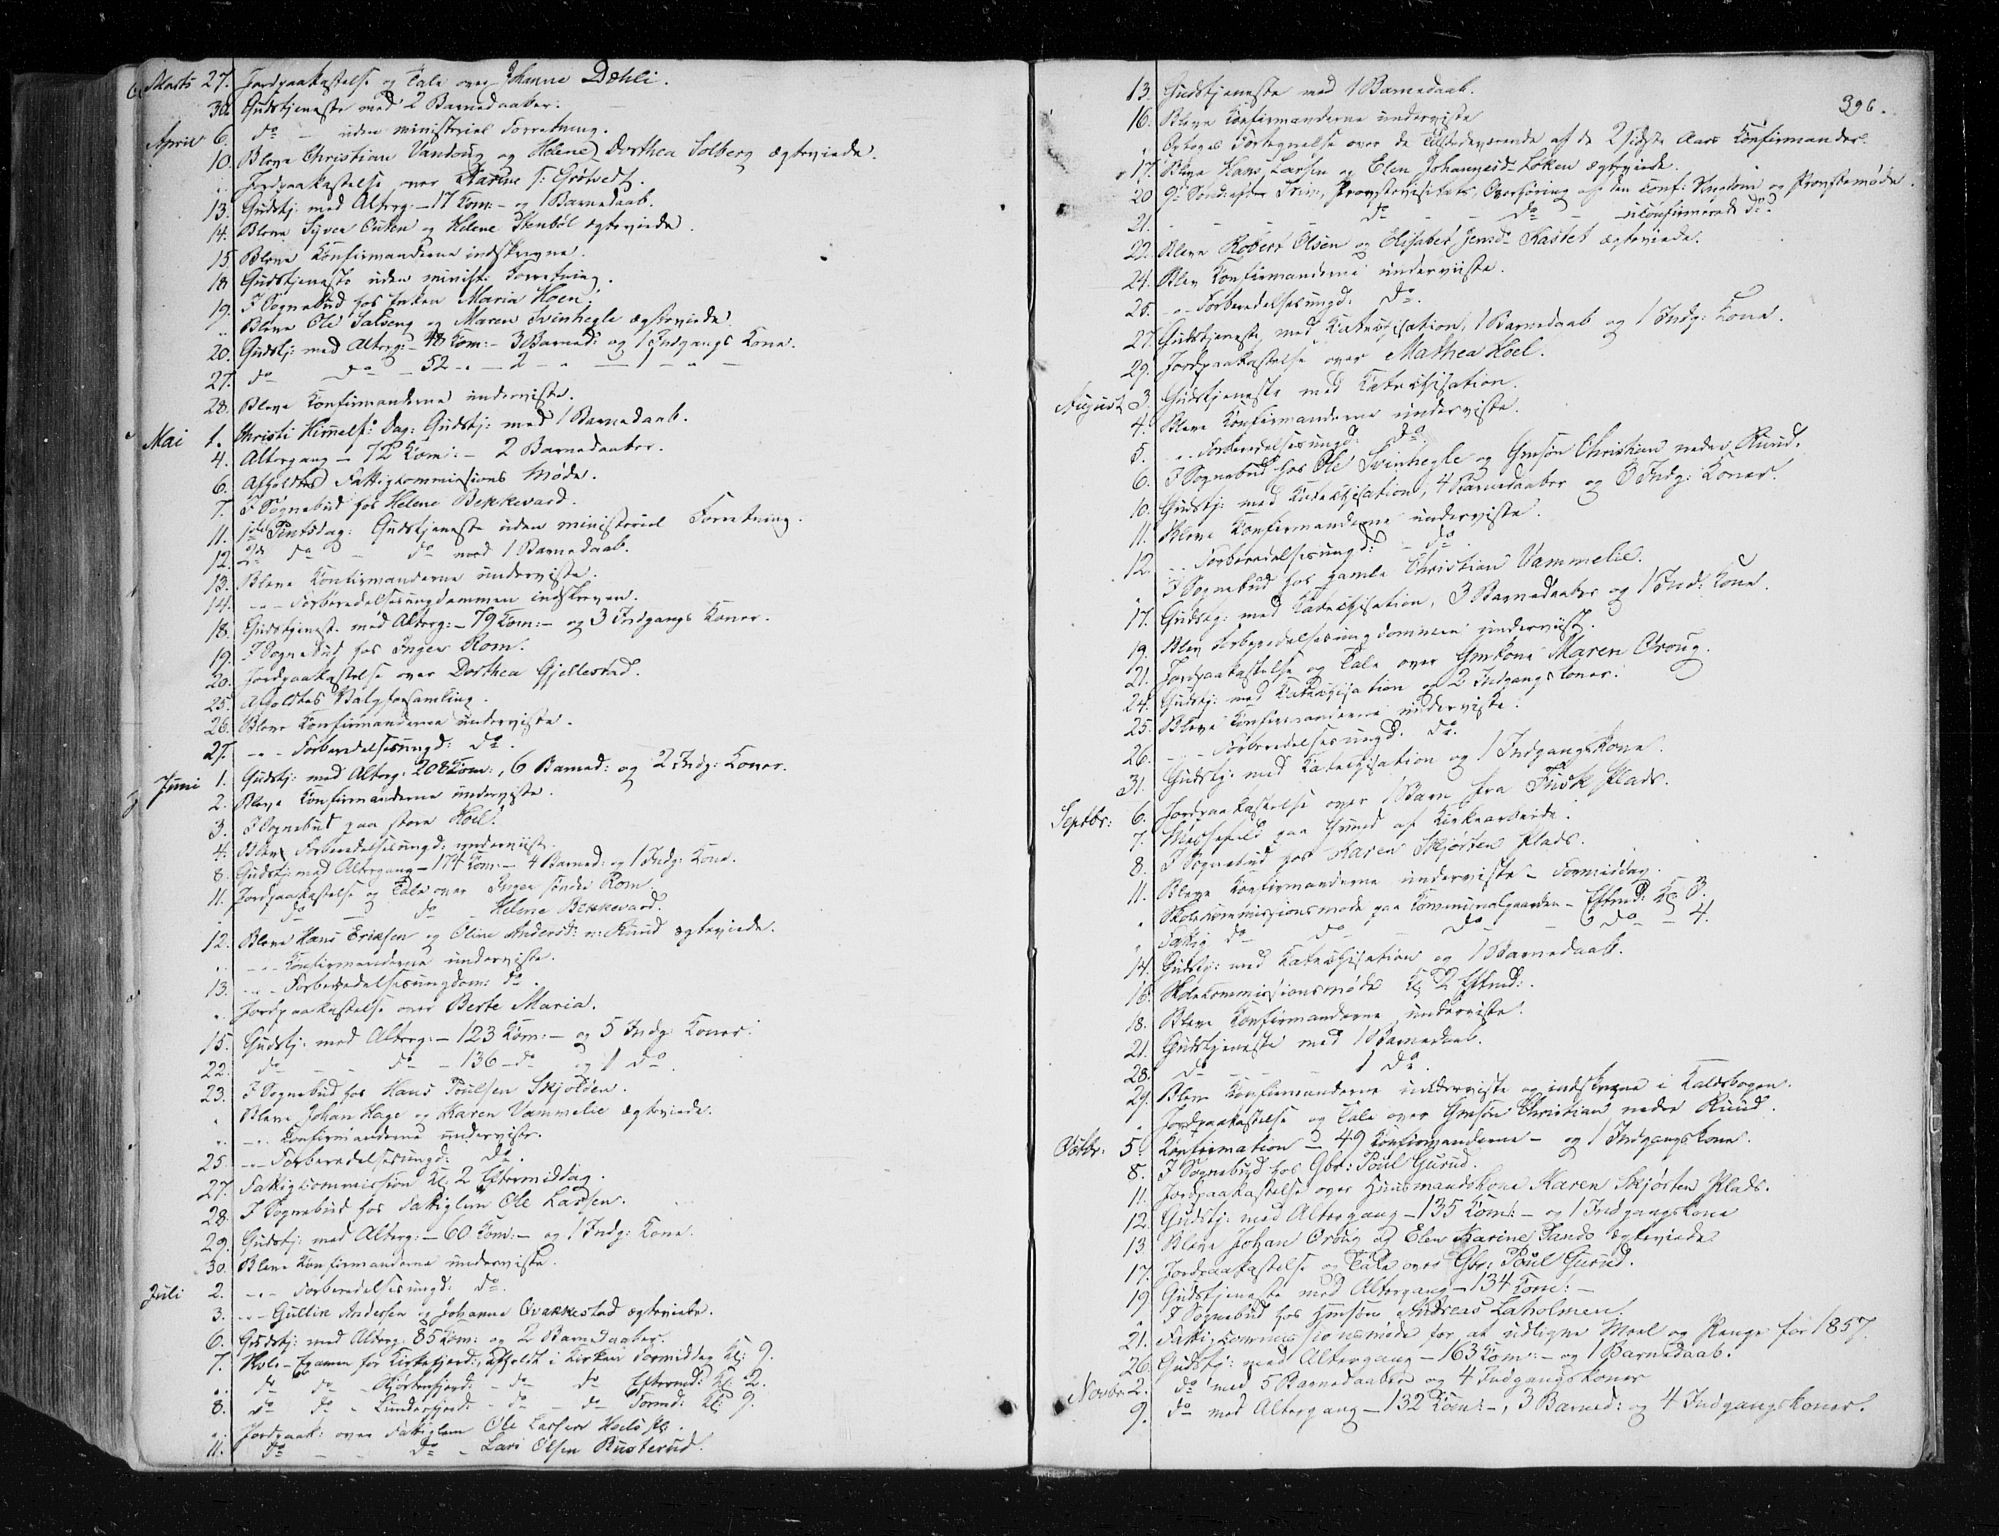 Marts 27. Jordpaakastelse og Tale over Johanne Dæhli.
30. Gudstjeneste med 2 Barnedaaber.
April 6. do – uden ministeriel Forretning.
10. Bleve Christian Vandoug og Helene Dorthea Solberg ægteviede.
" Jordpaakastelse over Karine
13. Gudstj: med Alterg: – 17 Kom: – og 1 Barnedaab.
14. Bleve Syver Onten og Helene Stenbøl ægteviede.
15 Bleve Konfirmanderne indskrevne.
18 Gudstjeneste uden minist: Forretning.
19. I Sognebud hos Enken Maria Hoen.
" Bleve Ole Salveng og Maren Svinhegle ægteviede.
20. Gudstj: med Alterg: – 48 Kom: – 3 Barned: og 1 Indgangs Kone.
27. do do – 52 – " – 2 – " – 1 – " –
28. Bleve Konfirmanderne underviste.
Mai 1. Christi Himmelf: Dag: Gudstj: med 1 Barnedaab.
4. Altergang – 72 Kom: – 2 Barnedaaber.
6. Afholdtes Fattigkommissions Møde.
7. I Sognebud hos Helene Bekkevard.
11. 1ste Pintsdag: Gudstjeneste uden ministeriel Forretning.
12. 2d do – do med 1 Barnedaab.
13. Bleve Konfirmanderne underviste.
14. – " – Forberedelsesungdommen indskreven.
18. Gudstjenest. med Alterg: – 79 Kom: – og 3 Indgangs Koner.
19. I Sognebud hos Inger Rom.
20. Jordpaakastelse over Dorthea Gjellestad.
25. Afholdtes Valgforsamling.
26. Bleve Konfirmanderne underviste.
27. – " – Forberedelsesungd: do.
Juni 1. Gudstj: med Alterg: 208 Kom:, 6 Barned: og 2 Indg: Koner.
2. Bleve Konfirmanderne underviste.
3. I Sognebud paa store Hoel.
4. Blev Forberedelsesungd: underviist.
8. Gudstj: med Altergang – 174 Kom: – 4 Barned: og 1 Indg: Kone.
11. Jordpaakastelse og Tale over Inger søndre Rom.
do – do Helene Bekkevard.
12. Bleve Hans Eriksen og Oline Andersd: n: Ruud ægteviede.
" – " – Konfirmanderne underviste.
13. – " – Forberedelsesungdom: do.
" Jordpaakastelse over Berte Maria.
15. Gudstj: med Alterg: – 123 Kom: – og 5 Indg: Koner.
22. do – – do – 136 – do og 1 do.
23. I Sognebud hos Hans Poulsen Skjolden.
" Bleve Johan Hage og Karen Vammelie ægteviede.
" – " – Konfirmanderne underviste.
25. – " – Forberedelsesungd: do.
27. Fattigcommission Kl. 2 Eftermiddag.
28. I Sognebud hos Fattiglem Ole Larsen.
29. Gudstj: med Alterg: – 60 Kom: – og 1 Indg: Kone.
30. Bleve Konfirmanderne underviste.
Juli 2. – " – Forberedelsesungd: do.
3. – " – Gullik Andersen og Johanne Ovakkestad ægteviede.
6. Gudstj: med Alterg: 85 Kom: og 2 Barnedaaber.
7. Skole-Examen for Kirkefjerd: afholdt i Kirken Formiddag Kl: 9.
" do do – Skjørtenfjerd: – do do Eftermd: Kl: 2.
8. do do – Linderfjerd: – do – do Formd: Kl: 9.
" Jordpaak: over Fattiglem Ole Larsen Hoels
11. do – do – Lars Olsen Rusterud.
396.
13. Gudstjeneste med 1 Barnedaab.
16. Bleve Konfirmanderne underviste
" Optoges Fortegnelse over de Tilstedeværende af de 2 sidste Aars Konfirmander.
17. Bleve Hans Larsen og Elen Johannesd: Løken ægteviede.
20. 9de Sønd: efter Trin, Provstevisitats, Overhøring af den conf: Ungdom og Provstemøde.
21. – – do – – do – – ukonfirmerede do.
22. Bleve Robert Olsen og Elisabet Jensd: Kastet ægteviede.
24. Blev Konfirmanderne underviste.
25. – " – Forberedelsesungd: do.
27. Gudstjeneste med Katechisation, 1 Barnedaab og 1 Indg: Kone.
29. Jordpaakastelse over Mathea Hoel.
August 3. Gudstjeneste med Katechisation.
4. Bleve Konfirmanderne underviste.
5. – " – Forberedelsesungd: do.
6. I Sognebud hos Ole Svinhegle og Gmsøn Christian nedre Ruud.
10. Gudstj: med Katechisation, 4 Barnedaaber og 3 Indg: Koner.
11. Bleve Konfirmanderne underviste.
12. – " – Forberedelsesungd: – do.
" I Sognebud hos gamle Christian Vammelie.
17. Gudstj: med Katechisation, 3 Barnedaaber og 1 Ind: Kone.
19. Blev Forberedelsesungdommen underviist.
21. Jordpaakastelse og Tale over Gmkone Maren Oroug.
24. Gudstj: med Katechisation og 2 Indgangskoner.
25. Bleve Konfirmanderne underviste.
26. – " – Forberedelsesungd: do.
31. Gudstj: med Katechisation og 1 Indgangskone.
Septbr: 6. Jordpaakastelse over 1 Barn fra Fiisk Plads.
7. Messefald paa Grund af Kirkearbeide.
8. I Sognebud hos Karen Skjørten Plads.
11. Bleve Konfirmanderne underviste – Formiddag.
" Skolecommissionsmøde paa Kommunalgaarden – Eftmd: Kl 3.
" Fattig do – do – do – do – 4.
14. Gudstj: med Katechisation og 1 Barnedaab.
16. Skolekommissionsmøde Kl 2 Eftmd:.
18. Bleve Konfirmanderne underviste.
21. Gudstjeneste med 1 Barnedaab.
28. do – – – 1 do.
29. Blev Konfirmanderne underviste og indskrevne i Kaldsbogen.
" Jordpaakastelse og Tale over Gmsøn Christian nedre Ruud.
Octbr: 5. Konfirmation – 49 Konfirmanderne – og 1 Indgangskone.
8. I Sognebud hos Gbr: Poul Gurud.
11. Jordpaakastelse over Huusmandskone Karen Skjørten Plads.
12. Gudstj: med Altergang – 135 Kom: – og 1 Indgangskone
13. Bleve Johan Oroug og Elen Karine Sands ægteviede
17. Jordpaakastelse og Tale over Gbr: Poul Gurud.
19. Gudstjeneste med Altergang – 134 Kom: –
" I Sognebud hos Hmsøn Andreas Laholmen.
21. Fattigcommissionsmøde for at udligne Meel og Penge for 1857.
26. Gudstj: med Altergang – 163 Kom: – og 1 Barnedaab.
Novbr 2. do med 5 Barnedaaber og 4 Indgangskoner
9. do med Altergang – 132 Kom: –, 3 Barned: og 4 Indgangskoner.